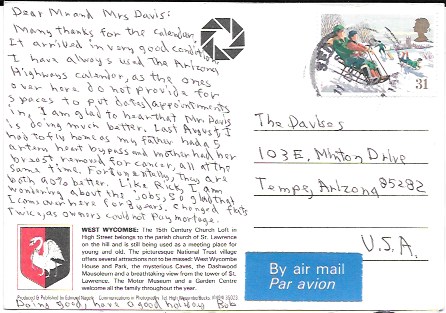 Dear Mr and Mrs Davis:
Many thanks for the calendar.
It arrived in very good condition.
I have allways used The Arizona
Highways calendar, as the ones
over here do not provide for
spaces to put dates/appointments
in. I am glad to hear that Mr Davis
is doing much better. Last August I
had to fly home as my father had a 5
artery heart bypass and mother had her
breast removed for cancer, all at the
same time. Fortunatelly, they are
both 90% better. Like Rick, I am
wondering about the jobs, so glad that
I came over here for 3 years. Changed flats
twice, as owners could not pay mortgage.
WEST WYCOMBE: The 15th Century Church Loft in
High Street belongs to the parish church of St. Lawrence
on the hill and is still being used as a meeting place for
young and old. The picturesque National Trust village
offers several attractions not to be missed: West Wycombe
House and Park, the mysterious Caves, the Dashwood
Mausoleum and a breathtaking view from the tower of St.
Lawrence. The Motor Museum and a Garden Centre
welcome all the family throughout the year.
Doing good, have a good holiday Bob
31
The Davises
103 E. Minton Drive
Tempe, Arizona 85282
U.S.A.
By air mail
Par avion